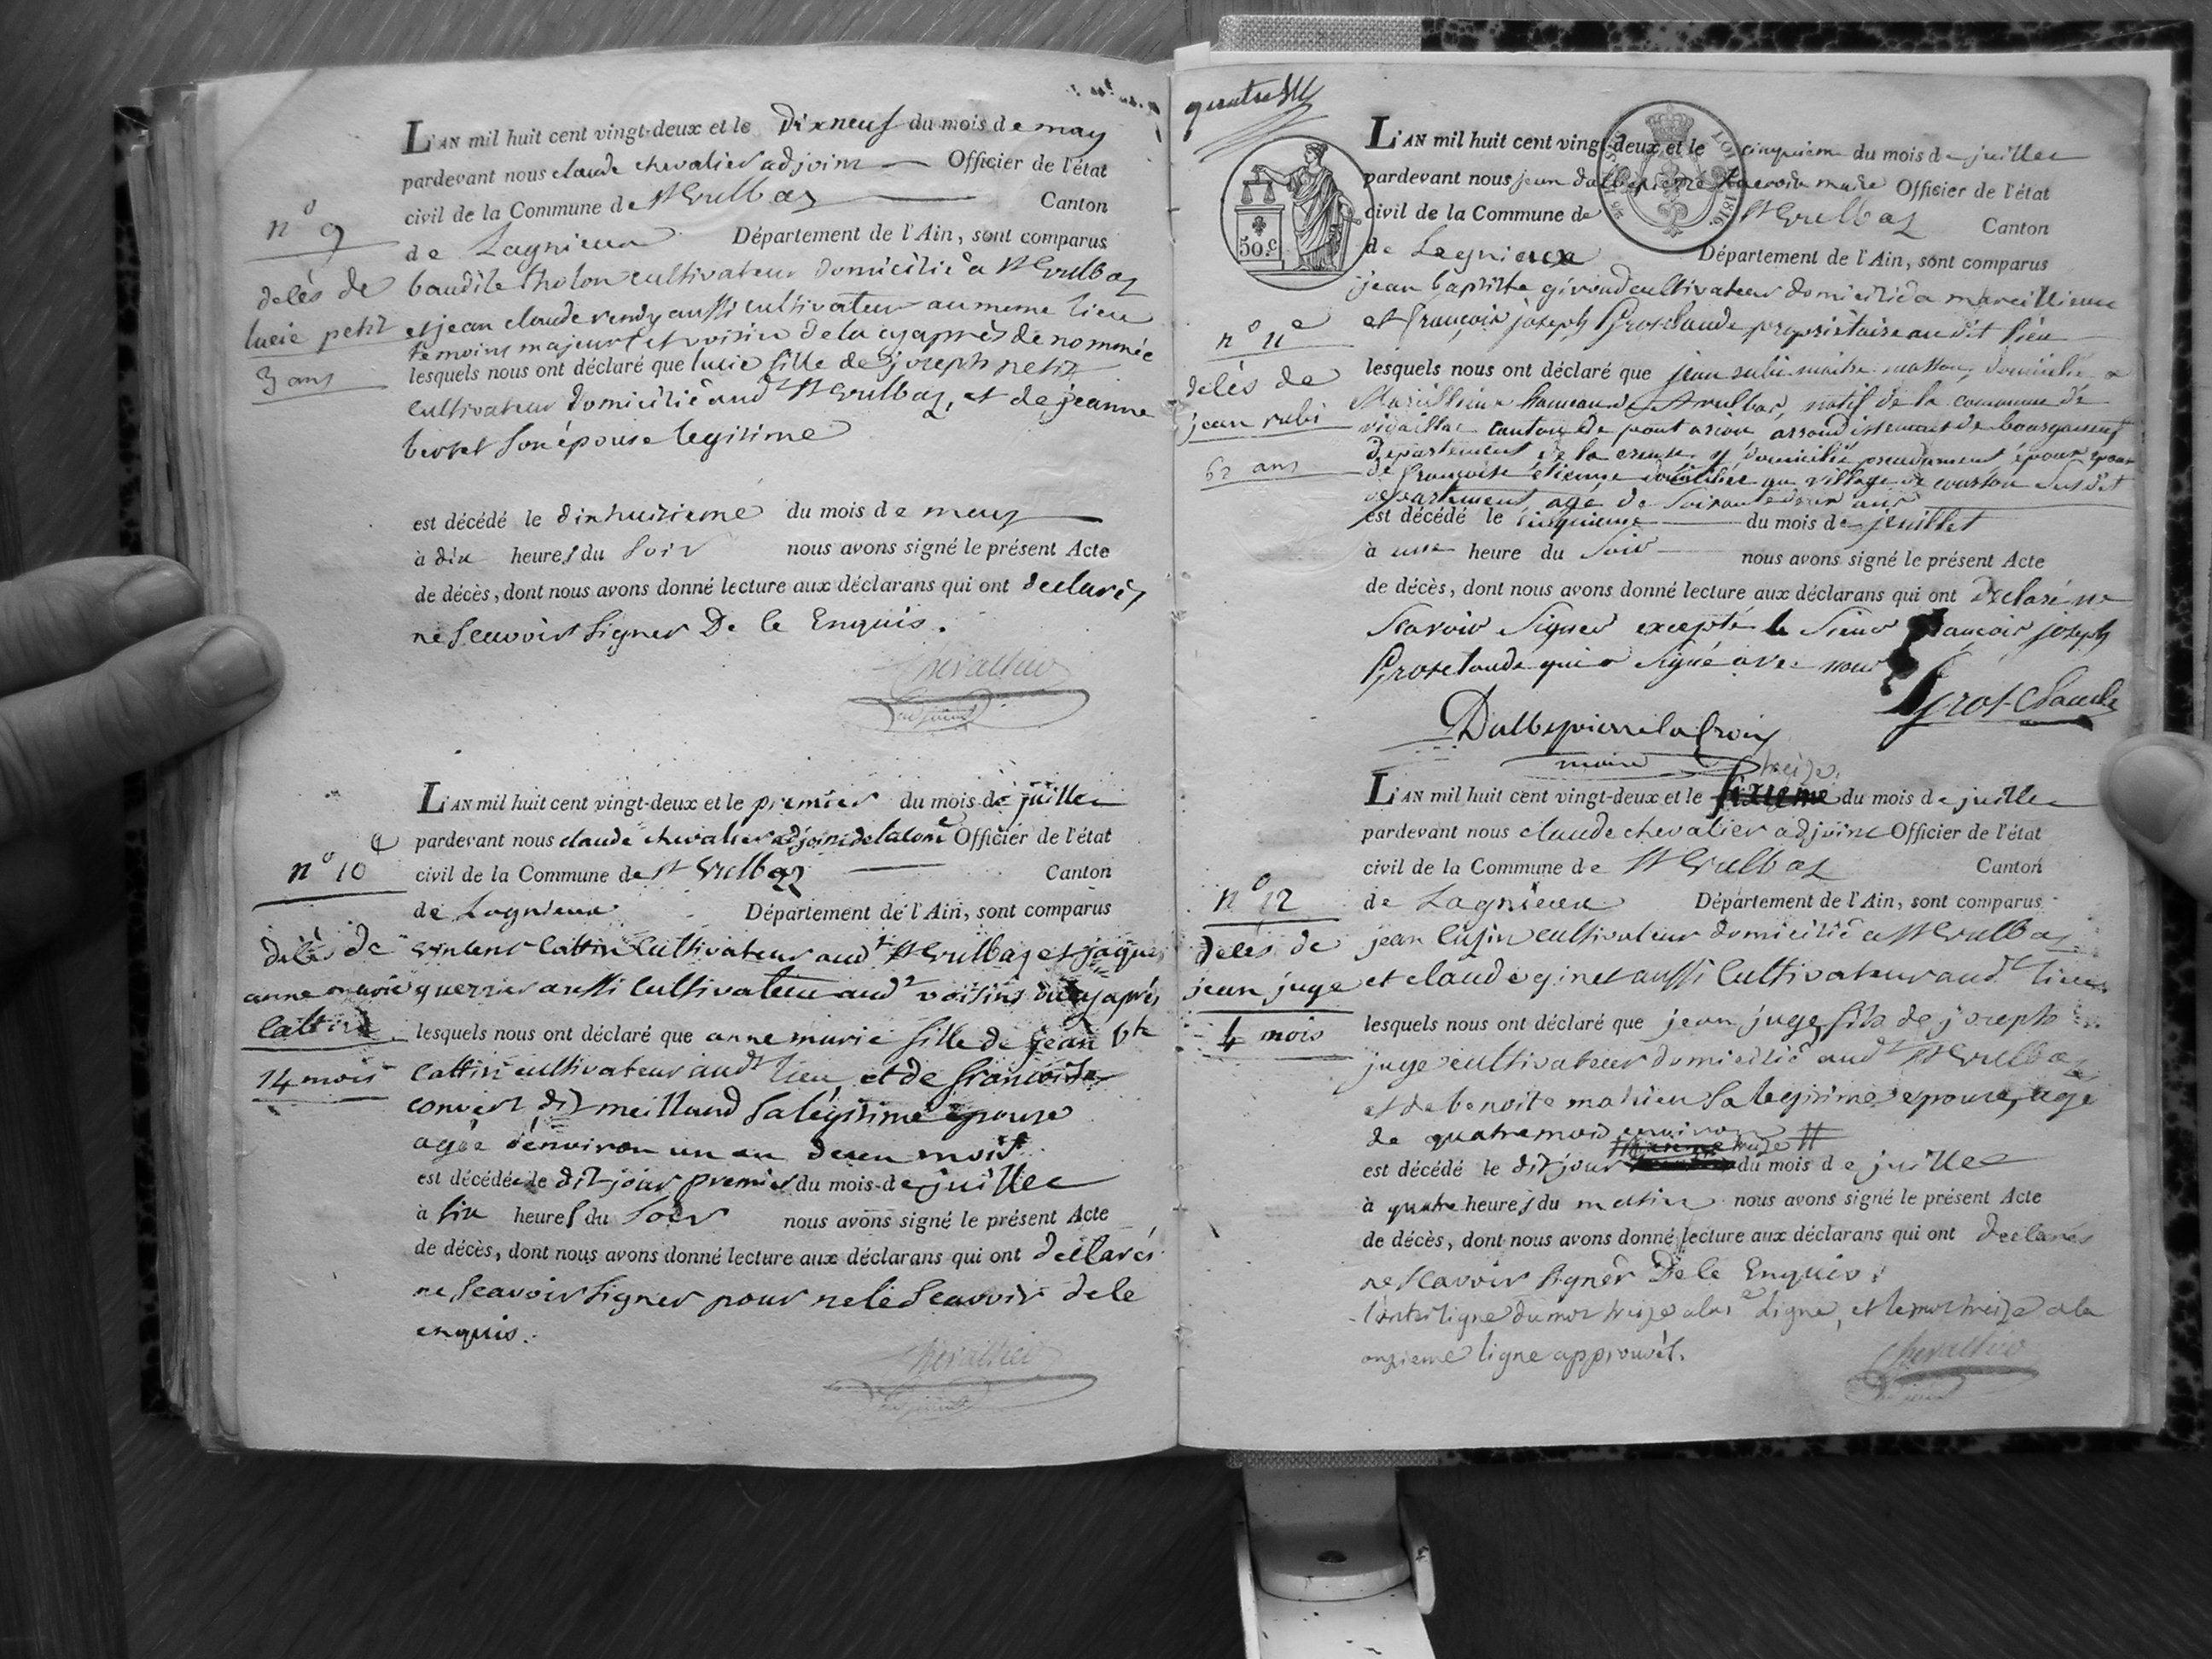 L'AN mil huit cent vingt-deux et le Dixneuf du mois de may
pardevant nous claude chevalier adjoint Officier de l'état
civil de la Commune de St Vulbas Canton
de Lagnieux Département de l'Ain, sont comparus
n° 9
décès de
lucie petit
3 ans
baudile tholon cultivateur domicilié a St Vulbaz
et jean claude rendy aussi cultivateur au meme lieu
temoins majeurs et voisin de la cy après denommée
lesquels nous ont déclaré que lucie fille de joseph petit
cultivateur domicilié aud St Vulbaz, et de jeanne
berset son épouse legitime
est décédé le dixhuitieme du mois de may
à dix heures du soir nous avons signé le présent Acte
de décès, dont nous avons donné lecture aux déclarans qui ont declarés
ne scavoir signer De ce Enquis.
Chevallier
adjoint
L'AN mil huit cent vingt-deux et le premier du mois de juillet
pardevant nous claude chevalier adjoint de la cone Officier de l'état
civil de la Commune de St Vulbaz Canton
de Lagnieux Département de l'Ain, sont comparus
n° 10
décès de
anne marie
Cattin
14 mois
vincent Cattin Cultivateur audt St Vulbaz et jaques
guerrier aussi Cultivateur audt voisins cy après
lesquels nous ont déclaré que anne marie fille de jean bte
Cattin cultivateur audt lieu et de francoise
convert dit meilland sa légitime épouse
agée d'environ un an deux mois
est décédée le dit jour premier du mois de juillet
à six heures du soir nous avons signé le présent Acte
de décès, dont nous avons donné lecture aux déclarans qui ont declarés
ne scavoir signer pour ne le scavoir de le
enquis.
Chevallier
adjoint
50.c
LOI 1816
L'AN mil huit cent vingt-deux et le cinquieme du mois de juillet
pardevant nous jean dalbepierre lacroix maire Officier de l'état
civil de la Commune de St Vulbaz Canton
de Lagnieux Département de l'Ain, sont comparus
n° 11
décès de
jean rubi
62 ans
jean baptiste giroud cultivateur domicilié a marcillieux
et françois joseph Grosclaude propriétaire au dit lieu
lesquels nous ont déclaré que jean rubi maitre masson, domicilié a
Marcillieux hameau de St vulbas, natif de la commune de
canton de pontarion arrondissement de bourganeuf
Département de la creuse y domicilié époux
de françoise étienne domiciliée au village de susdit
departement, agé de soixante deux ans
est décédé le cinquieme du mois de juillet
à une heure du soir nous avons signé le présent Acte
de décès, dont nous avons donné lecture aux déclarans qui ont Déclaré ne
scavoir signer excepté le Sieur françois joseph
Grosclaude qui a signé avec nous
Grosclaude
Dalbepierre la Croix
maire
treize
L'AN mil huit cent vingt-deux et le sixieme du mois de juillet
pardevant nous claude chevalier adjoint Officier de l'état
civil de la Commune de St Vulbaz Canton
de Lagnieux Département de l'Ain, sont comparus
n° 12
décès de
jean juge
4 mois
jean cusin cultivateur domicilié a St Vulbaz
et claude ginet aussi Cultivateur audt lieu
lesquels nous ont déclaré que jean juge fils de joseph
juge cultivateur domicilié audt St Vulbaz
et de benoite mathieu sa legitime epouse, age
de quatre mois environ
est décédé le dit jour treize du mois de juillet
à quatre heures du matin nous avons signé le présent Acte
de décès, dont nous avons donné lecture aux déclarans qui ont declarés
ne scavoir signer De ce Enquis.
L'interligne du mot treize a la 1e ligne, et le mot treize a la
onzieme ligne approuvés.
Chevallier
adjoint